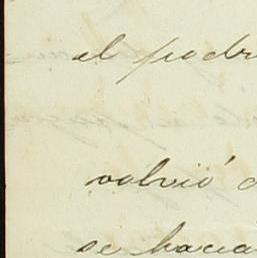 el podr
volvió
se hacia